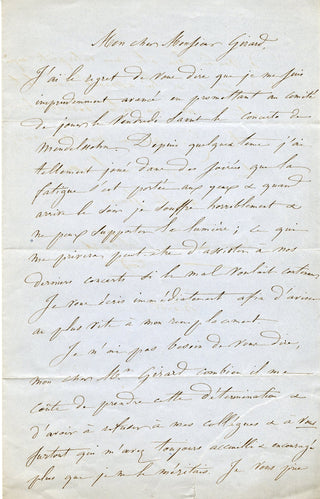 Mon cher Monsieur Girard,
J'ai le regret de vous dire que je me suis
imprudemment avancé en promettant au comité
de jouer le Vendredi Saint le concerto de
Mendelssohn. Depuis quelque tems j'ai
tellement joué dans des soirées que la
fatigue s'est portée aux yeux & quand
arrive le soir je souffre horriblement &
ne peux supporter la lumière; ce qui
me privera peut-être d'assister à nos
derniers concerts si le mal voulait continuer.
Je vous écris immédiatement afin d'aviser
au plus vite à mon remplacement
Je n'ai pas besoin de vous dire,
mon cher Mr. Girard combien il me
coûte de prendre cette détermination &
d'avoir à refuser à mes collègues & à vous
surtout qui m'avez toujours accueilli & encouragé
plus que je ne le méritais. Je vous prie